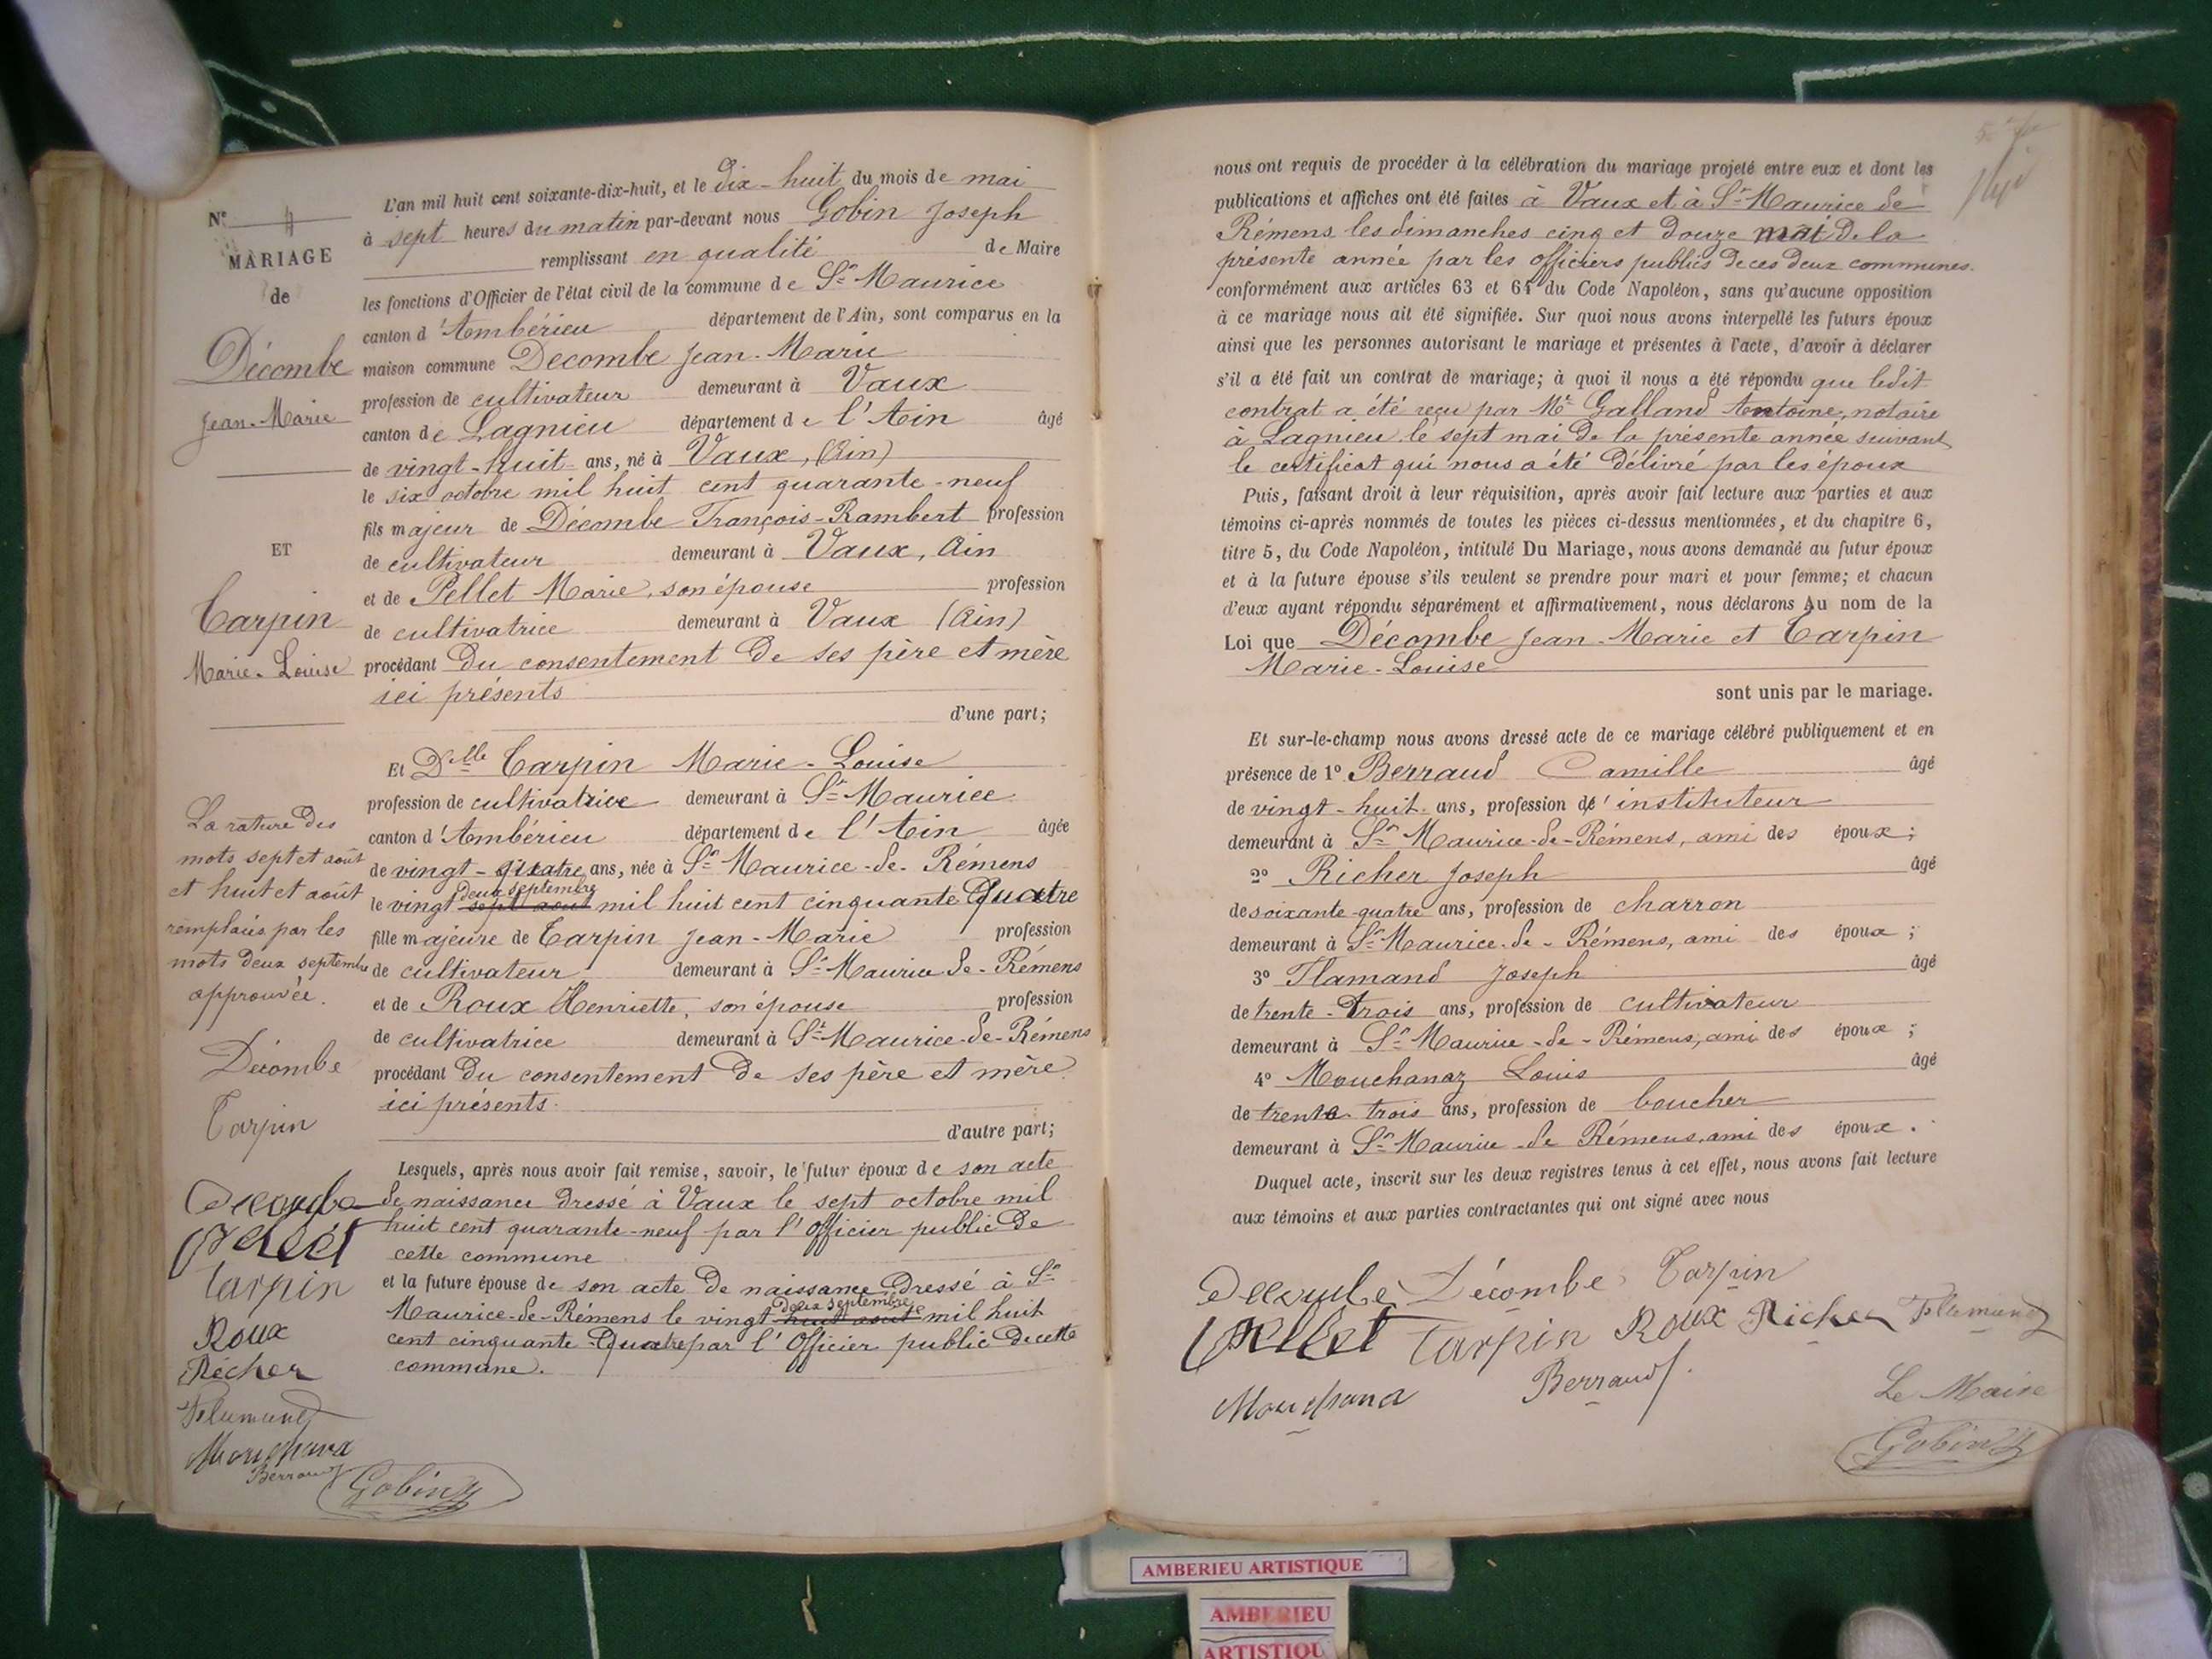 N° 4
MARIAGE
de
Décombe
Jean-Marie
ET
Carpin
Marie-Louise
La rature des
mots sept et août
et huit et août
remplacés par les
mots deux septembre
approuvée.
Décombe
Carpin
Decombe
Pellet
Carpin
Roux
Richer
Flamand
Mouchana
Berraud
Gobin
L'an mil huit cent soixante-dix-huit, et le dix-huit du mois de mai
à sept heures du matin par-devant nous Gobin Joseph
remplissant en qualité de Maire
les fonctions d'Officier de l'état civil de la commune de St Maurice
canton d'Ambérieu département de l'Ain, sont comparus en la
maison commune Decombe Jean-Marie
profession de cultivateur demeurant à Vaux
canton de Lagnieu département de l'Ain âgé
de vingt-huit ans, né à Vaux, (Ain)
le six octobre mil huit cent quarante-neuf
fils majeur de Décombe François-Rambert profession
de cultivateur demeurant à Vaux, Ain
et de Pellet Marie, son épouse profession
de cultivatrice demeurant à Vaux (Ain)
procédant du consentement de ses père et mère
ici présents
d'une part;
Et Delle Carpin Marie-Louise
profession de cultivatrice demeurant à St Maurice
canton d'Ambérieu département de l'Ain âgée
de vingt-quatre ans, née à St Maurice-de-Rémens
deux septembre
le vingt sept aout mil huit cent cinquante Quatre
fille majeure de Carpin Jean-Marie profession
de cultivateur demeurant à St Maurice de-Rémens
et de Roux Henriette, son épouse profession
de cultivatrice demeurant à St Maurice-de-Rémens
procédant du consentement de ses père et mère
ici présents.
d'autre part;
Lesquels, après nous avoir fait remise, savoir, le futur époux de son acte
de naissance dressé à Vaux le sept octobre mil
huit cent quarante-neuf par l'Officier public de
cette commune
et la future épouse de son acte de naissance dressé à St
deux septembre
Maurice-de-Rémens le vingt-huit aout mil huit
cent cinquante-Quatre par l'Officier public de cette
commune.
nous ont requis de procéder à la célébration du mariage projeté entre eux et dont les
publications et affiches ont été faites à Vaux et à St Maurice de
Rémens les dimanches cinq et douze mai de la
présente année par les officiers publics de ces deux communes.
conformément aux articles 63 et 64 du Code Napoléon, sans qu'aucune opposition
à ce mariage nous ait été signifiée. Sur quoi nous avons interpellé les futurs époux
ainsi que les personnes autorisant le mariage et présentes à l'acte, d'avoir à déclarer
s'il a été fait un contrat de mariage; à quoi il nous a été répondu que ledit
contrat a été reçu par Me Galland Antoine, notaire
à Lagnieu le sept mai de la présente année suivant
le certificat qui nous a été délivré par les époux
Puis, faisant droit à leur réquisition, après avoir fait lecture aux parties et aux
témoins ci-après nommés de toutes les pièces ci-dessus mentionnées, et du chapitre 6,
titre 5, du Code Napoléon, intitulé Du Mariage, nous avons demandé au futur époux
et à la future épouse s'ils veulent se prendre pour mari et pour femme; et chacun
d'eux ayant répondu séparément et affirmativement, nous déclarons Au nom de la
Loi que Décombe Jean-Marie et Carpin
Marie-Louise
sont unis par le mariage.
Et sur-le-champ nous avons dressé acte de ce mariage célébré publiquement et en
présence de 1° Berraud Camille âgé
de vingt-huit ans, profession d'instituteur
demeurant à St Maurice-de-Rémens, ami des époux;
2° Richer Joseph âgé
de soixante-quatre ans, profession de charron
demeurant à St Maurice-de-Rémens, ami des époux;
3° Flamand Joseph âgé
de trente-trois ans, profession de cultivateur
demeurant à St Maurice-de-Rémens, ami des époux;
4° Mouchanaz Louis âgé
de trente trois ans, profession de boucher
demeurant à St Maurice-de Rémens, ami des époux.
Duquel acte, inscrit sur les deux registres tenus à cet effet, nous avons fait lecture
aux témoins et aux parties contractantes qui ont signé avec nous
Decombe Décombe Carpin
Pellet Carpin Roux Richer Flamand
Mouchana Berraud
Le Maire
Gobin
AMBERIEU ARTISTIQUE
AMBERIEU
ARTISTIQU